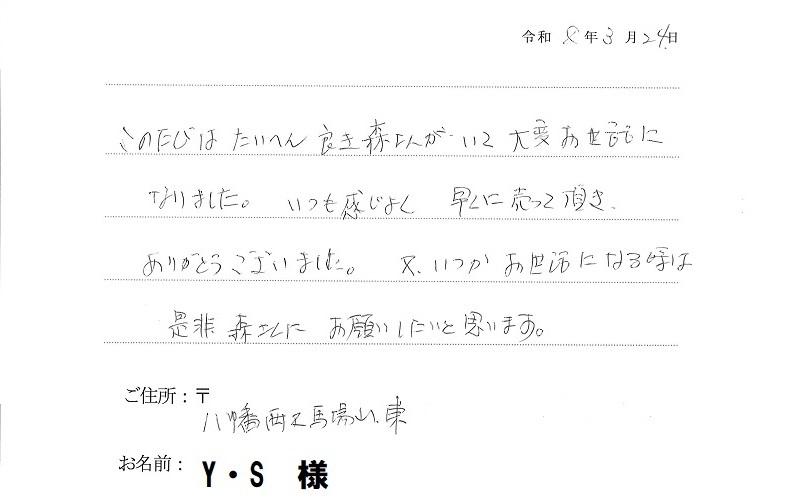 令和 8 年 3 月 24 日
このたびは たいへん 良き森さんがいて 大変お世話に
なりました。 いつも感じよく 早くに売って頂き、
ありがとうございました。 又、いつか お世話になる時は
是非 森さんに お願いしたいと思います。
ご住所：〒
八幡西区馬場山東
お名前： Y・S 様